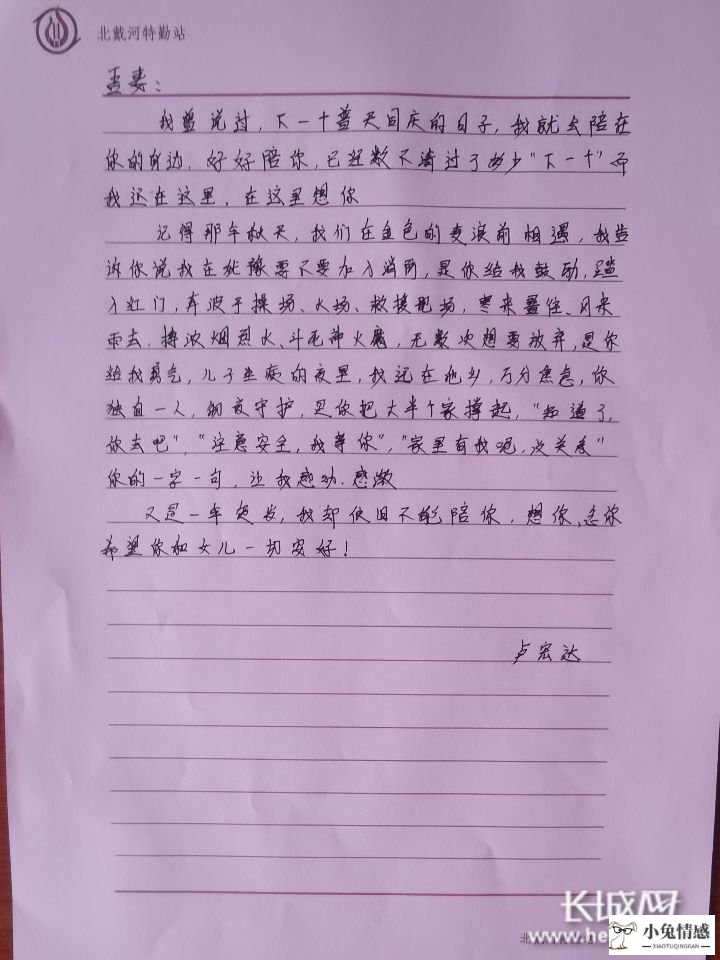 北戴河特勤站
吾妻：
我曾说过，下一个普天同庆的日子，我就去陪在
你的身边，好好陪你，已经数不清过了多少“下一个”而
我还在这里，在这里想你
记得那年秋天，我们在金色的麦浪前相遇，我告
诉你说我在犹豫要不要加入消防，是你给我鼓励，踏
入红门，奔波于操场、火场、救援现场，寒来暑往、风来
雨去，搏浓烟烈火、斗死神火魔，无数次想要放弃，是你
给我勇气，儿子生病的夜里，我远在他乡，万分焦急，你
独自一人，彻夜守护，是你把大半个家撑起，“知道了，
你去吧”，“注意安全，我等你”，“家里有我呢，没关系”
你的一字一句，让我感动、感激
又是一年，我却依旧不能陪你，想你、念你
希望你和女儿一切安好！
卢宏达
长城网
www.he
小兔情感
XIAOTUQINGGAN